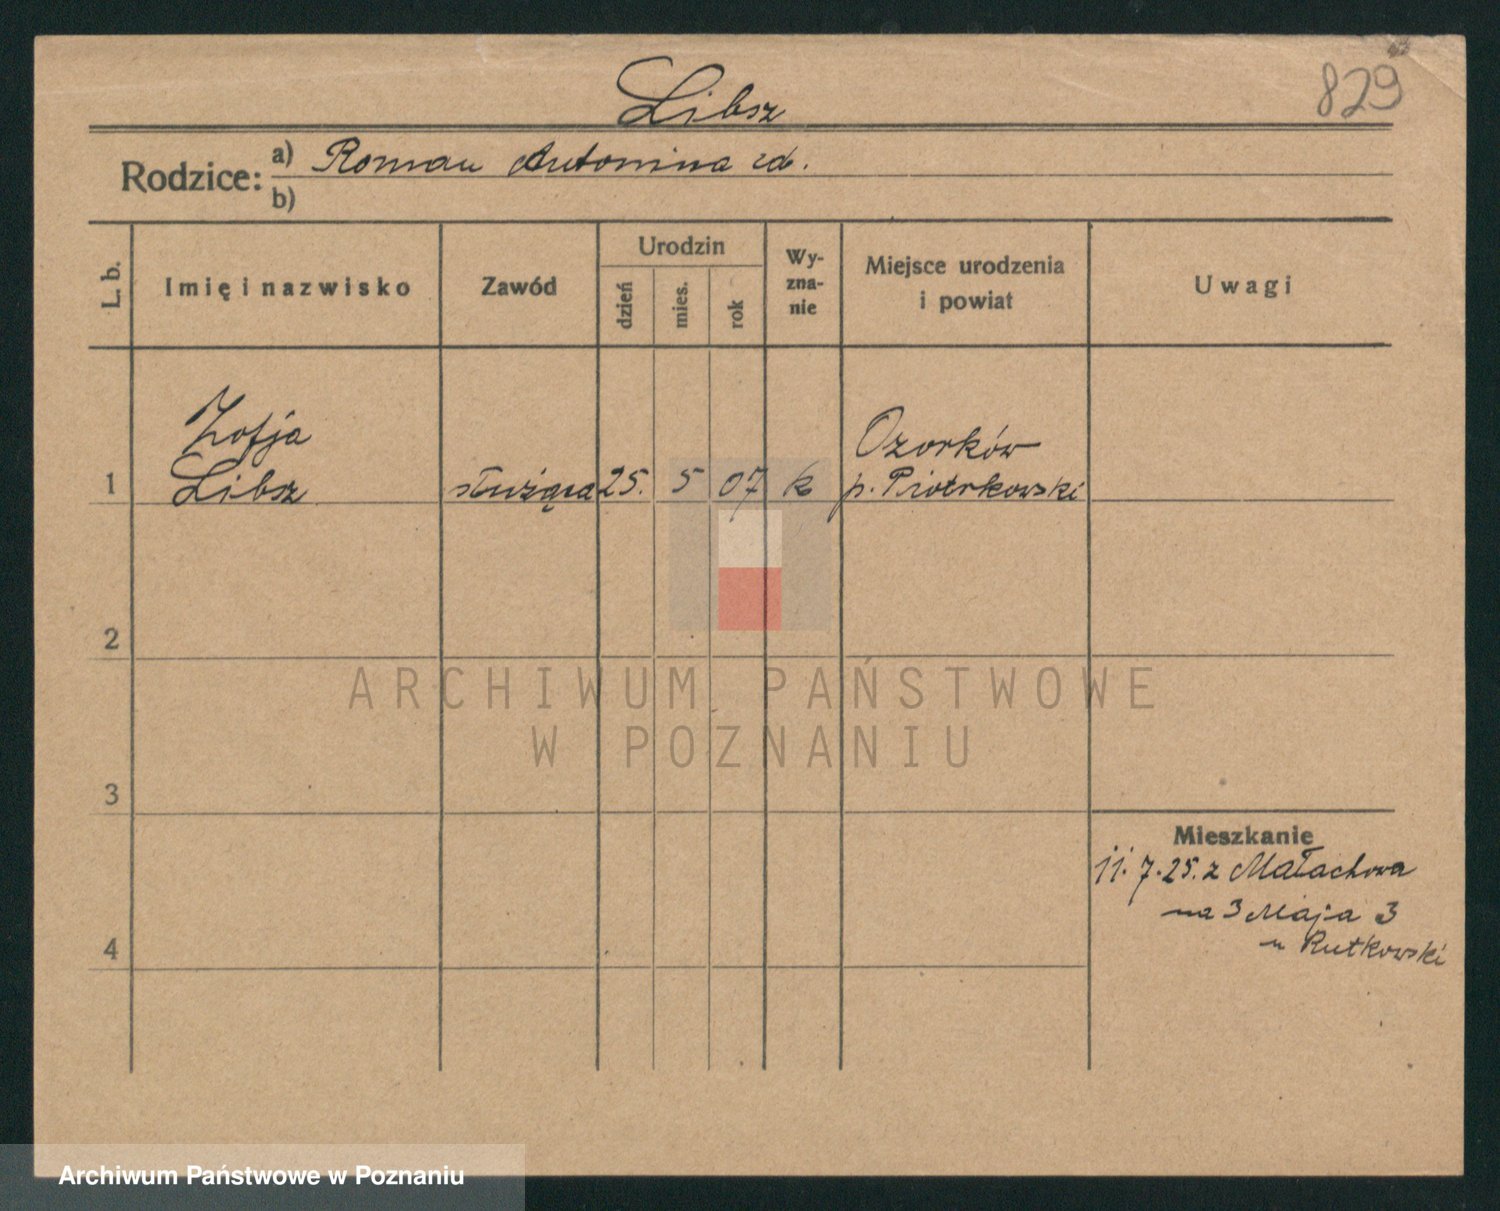 829
Libsz
Rodzice: a) Roman Antonina zd.
b)
L. b.
Imię i nazwisko
Zawód
Urodzin
dzień
mies.
rok
Wy-
zna-
nie
Miejsce urodzenia
i powiat
Uwagi
Zofja
Ozorków
1 Libsz służąca 25. 5 07 k p. Piotrkowski
2
3
4
Mieszkanie
11.7.25. z Małachowa
na 3 Maja 3
u Rutkowski
ARCHIWUM PAŃSTWOWE
W POZNANIU
Archiwum Państwowe w Poznaniu